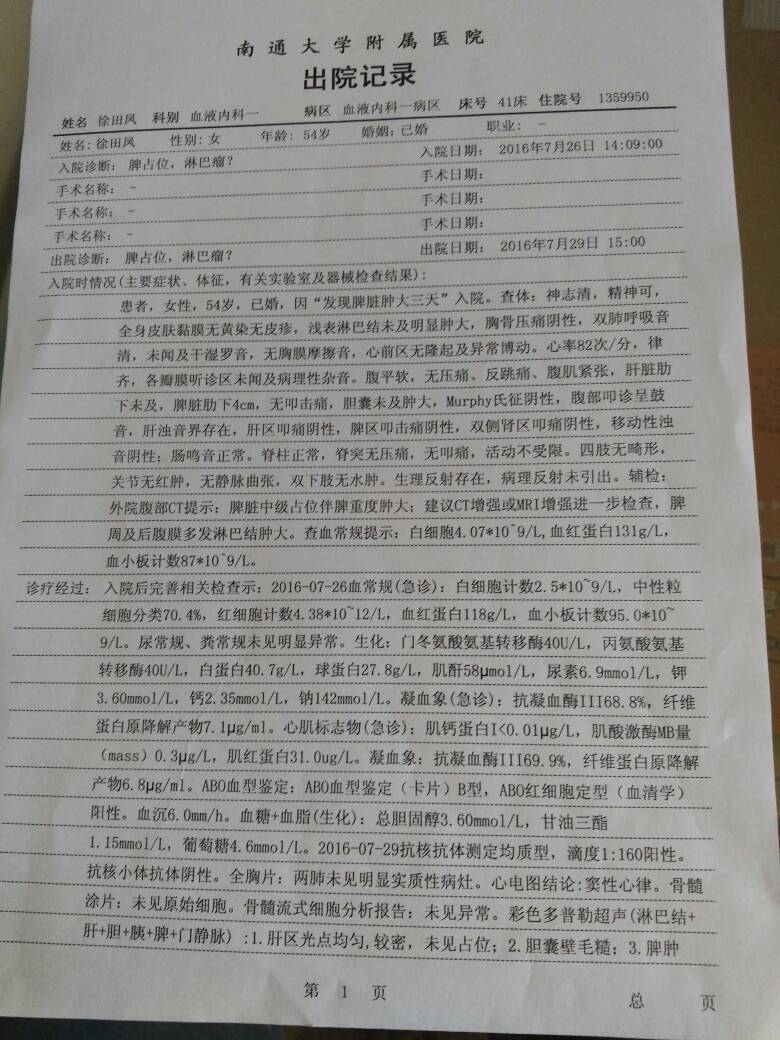 南通大学附属医院
出院记录
姓名 徐田凤 科别 血液内科一 病区 血液内科一病区 床号 41床 住院号 1359950
姓名: 徐田凤 性别: 女 年龄: 54岁 婚姻: 已婚 职业: -
入院诊断: 脾占位, 淋巴瘤? 入院日期: 2016年7月26日 14:09:00
手术名称: - 手术日期:
手术名称: - 手术日期:
手术名称: - 手术日期:
出院诊断: 脾占位, 淋巴瘤? 出院日期: 2016年7月29日 15:00
入院时情况(主要症状、体征, 有关实验室及器械检查结果):
患者, 女性, 54岁, 已婚, 因“发现脾脏肿大三天”入院。查体: 神志清, 精神可,
全身皮肤黏膜无黄染无皮疹, 浅表淋巴结未及明显肿大, 胸骨压痛阴性, 双肺呼吸音
清, 未闻及干湿罗音, 无胸膜摩擦音, 心前区无隆起及异常博动。心率82次/分, 律
齐, 各瓣膜听诊区未闻及病理性杂音。腹平软, 无压痛、反跳痛、腹肌紧张, 肝脏肋
下未及, 脾脏肋下4cm, 无叩击痛, 胆囊未及肿大, Murphy氏征阴性, 腹部叩诊呈鼓
音, 肝浊音界存在, 肝区叩痛阴性, 脾区叩击痛阴性, 双侧肾区叩痛阴性, 移动性浊
音阴性; 肠鸣音正常。脊柱正常, 脊突无压痛, 无叩痛, 活动不受限。四肢无畸形,
关节无红肿, 无静脉曲张, 双下肢无水肿。生理反射存在, 病理反射未引出。辅检:
外院腹部CT提示: 脾脏中级占位伴脾重度肿大; 建议CT增强或MRI增强进一步检查, 脾
周及后腹膜多发淋巴结肿大。查血常规提示: 白细胞4.07*10^9/L, 血红蛋白131g/L,
血小板计数87*10^9/L。
诊疗经过: 入院后完善相关检查示: 2016-07-26血常规(急诊): 白细胞计数2.5*10~9/L, 中性粒
细胞分类70.4%, 红细胞计数4.38*10~12/L, 血红蛋白118g/L, 血小板计数95.0*10~
9/L。尿常规、粪常规未见明显异常。生化: 门冬氨酸氨基转移酶40U/L, 丙氨酸氨基
转移酶40U/L, 白蛋白40.7g/L, 球蛋白27.8g/L, 肌酐58μmol/L, 尿素6.9mmol/L, 钾
3.60mmol/L, 钙2.35mmol/L, 钠142mmol/L。凝血象(急诊): 抗凝血酶III68.8%, 纤维
蛋白原降解产物7.1μg/ml。心肌标志物(急诊): 肌钙蛋白I<0.01μg/L, 肌酸激酶MB量
(mass) 0.3μg/L, 肌红蛋白31.0ug/L。凝血象: 抗凝血酶III69.9%, 纤维蛋白原降解
产物6.8μg/ml。ABO血型鉴定: ABO血型鉴定（卡片）B型, ABO红细胞定型（血清学）
阳性。血沉6.0mm/h。血糖+血脂(生化): 总胆固醇3.60mmol/L, 甘油三酯
1.15mmol/L, 葡萄糖4.6mmol/L。2016-07-29抗核抗体测定均质型, 滴度1:160阳性。
抗核小体抗体阴性。全胸片: 两肺未见明显实质性病灶。心电图结论: 窦性心律。骨髓
涂片: 未见原始细胞。骨髓流式细胞分析报告: 未见异常。彩色多普勒超声(淋巴结+
肝+胆+胰+脾+门静脉) :1.肝区光点均匀, 较密, 未见占位; 2.胆囊壁毛糙; 3.脾肿
第 1 页 总 页